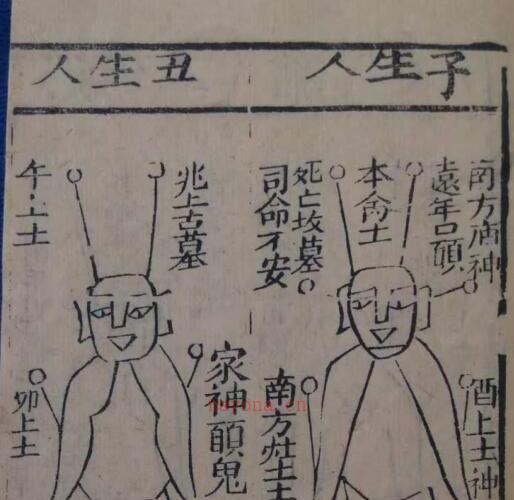 子生人
南方庙神
遠年口願
本命土
死亡坟墓
司命不安
酉上土神
南方灶土
丑生人
北上古墓
午上土
家神願鬼
卯上土
narona.cn